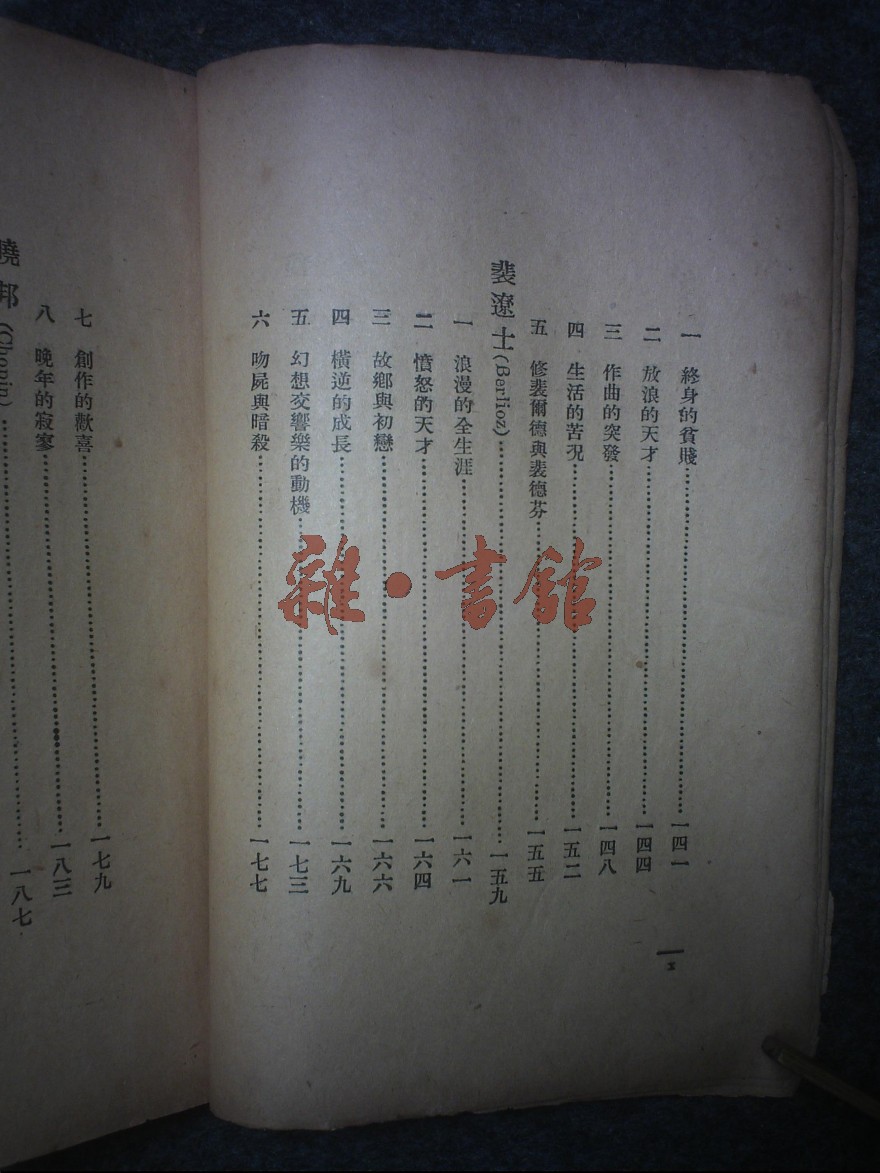 一　終身的貧賤…………一四一
二　放浪的天才…………一四四
三　作曲的突發…………一四八
四　生活的苦況…………一五二
五　修裴爾德與裴德芬…………一五五
裴遼士(Berlioz)…………一五九
一　浪漫的全生涯…………一六一
二　憤怒的天才…………一六四
三　故鄉與初戀…………一六六
四　橫逆的成長…………一六九
五　幻想交響樂的動機…………一七三
六　吻屍與暗殺…………一七七
七　創作的歡喜…………一七九
八　晚年的寂寥…………一八三
曉邦(Chopin)…………一八七
雜·書館